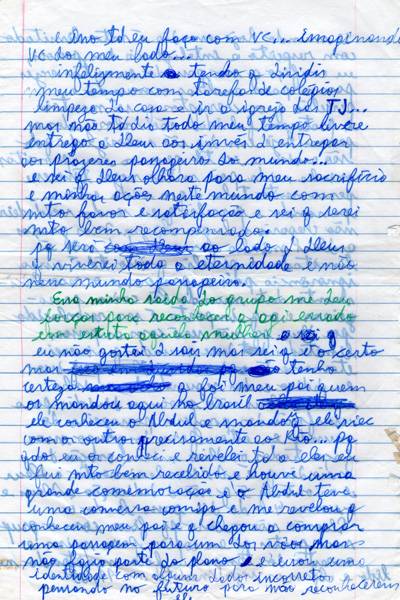 Eno td eu faço com vc... imaginando
vc do meu lado...
infelizmente tendo q dividir
meu tempo com tarefa de colégio,
limpeza da casa e ir a igreja das TJ...
mas não td dia todo meu tempo livre
entrego a Deus ao invés d entregar
aos prazeres passageiros do mundo...
e sei q Deus olhara para meu sacrifício
e minhas ações neste mundo com
mto favor e satisfação e sei q serei
mto bem recompensado.
pq será ao lado d Deus
q viverei toda a eternidade e não
nesse mundo passageiro.
Essa minha saída do grupo me deu
forças para reconhecer q agi errado
em estuta aquelas mulher e sei q
eu não gostei d sair mas sei q é o certo
mas pq tenho
certeza q foi meu pai quem
os mandou aqui no brasil
ele conheceu o Abdul e mandou q ele viec
com os outros precisamente ao Rio... pq
qdo eu os conheci e revelei td a eles eu
fui mto bem recebido e houve uma
grande comemoração e o Abdul teve
uma conversa comigo e me revelou q
conheceu meu pai e q chegou a comprar
uma passagem para um dos vôos, mas
não fazia parte do plano e usou uma
identidade com alguns dados incorretos
pensando no futuro para não reconhecerem